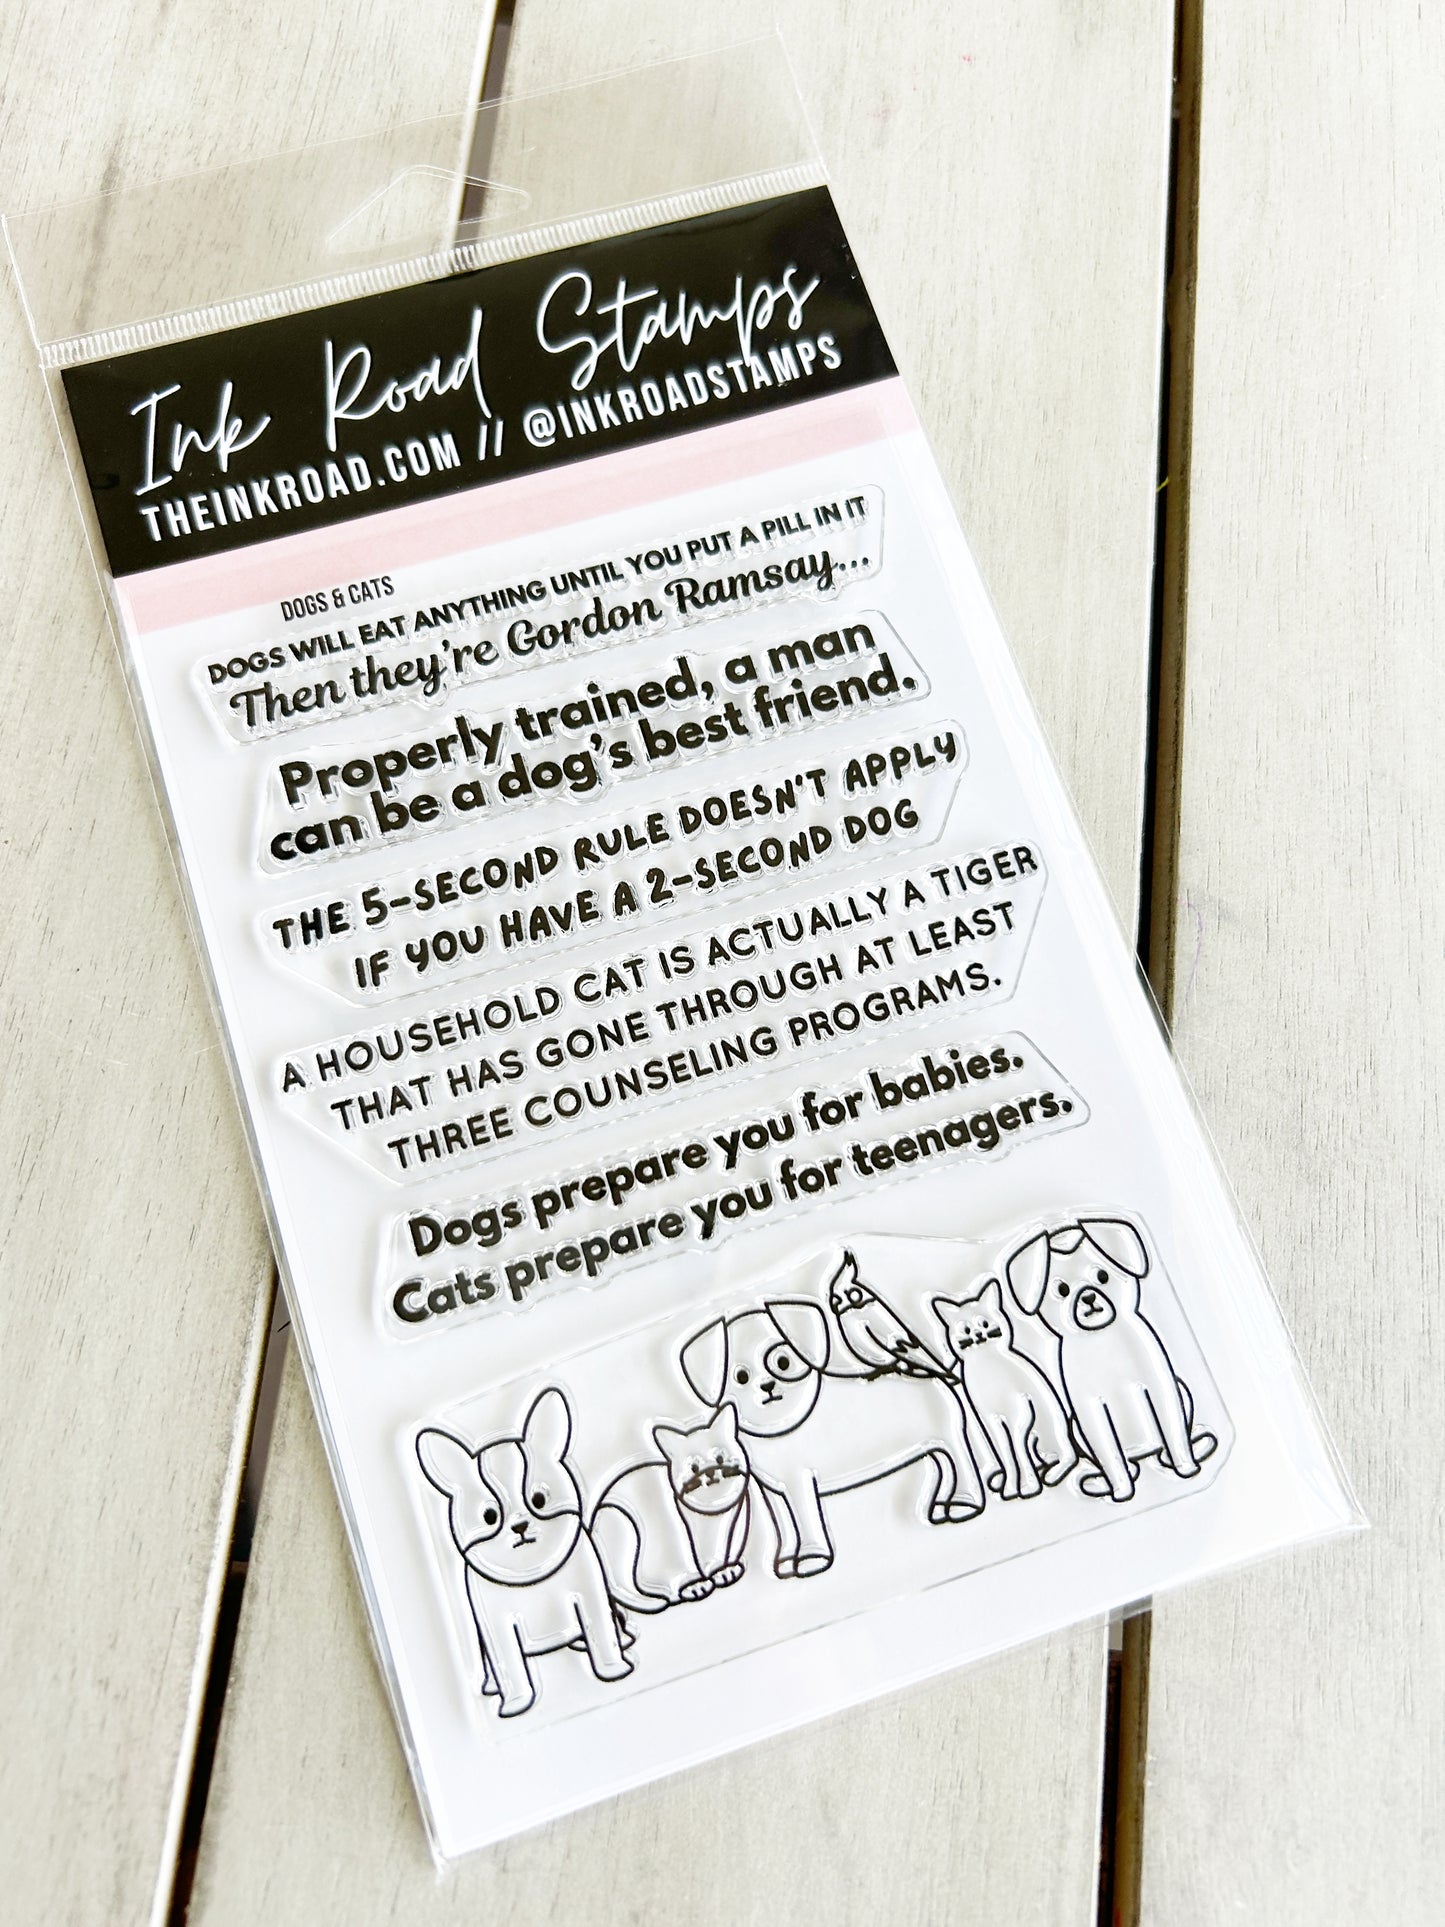 Ink Road Stamps
THEINKROAD.COM // @INKROADSTAMPS
DOGS & CATS
DOGS WILL EAT ANYTHING UNTIL YOU PUT A PILL IN IT
Then they're Gordon Ramsay...
Properly trained, a man
can be a dog's best friend.
THE 5-SECOND RULE DOESN'T APPLY
IF YOU HAVE A 2-SECOND DOG
A HOUSEHOLD CAT IS ACTUALLY A TIGER
THAT HAS GONE THROUGH AT LEAST
THREE COUNSELING PROGRAMS.
Dogs prepare you for babies.
Cats prepare you for teenagers.